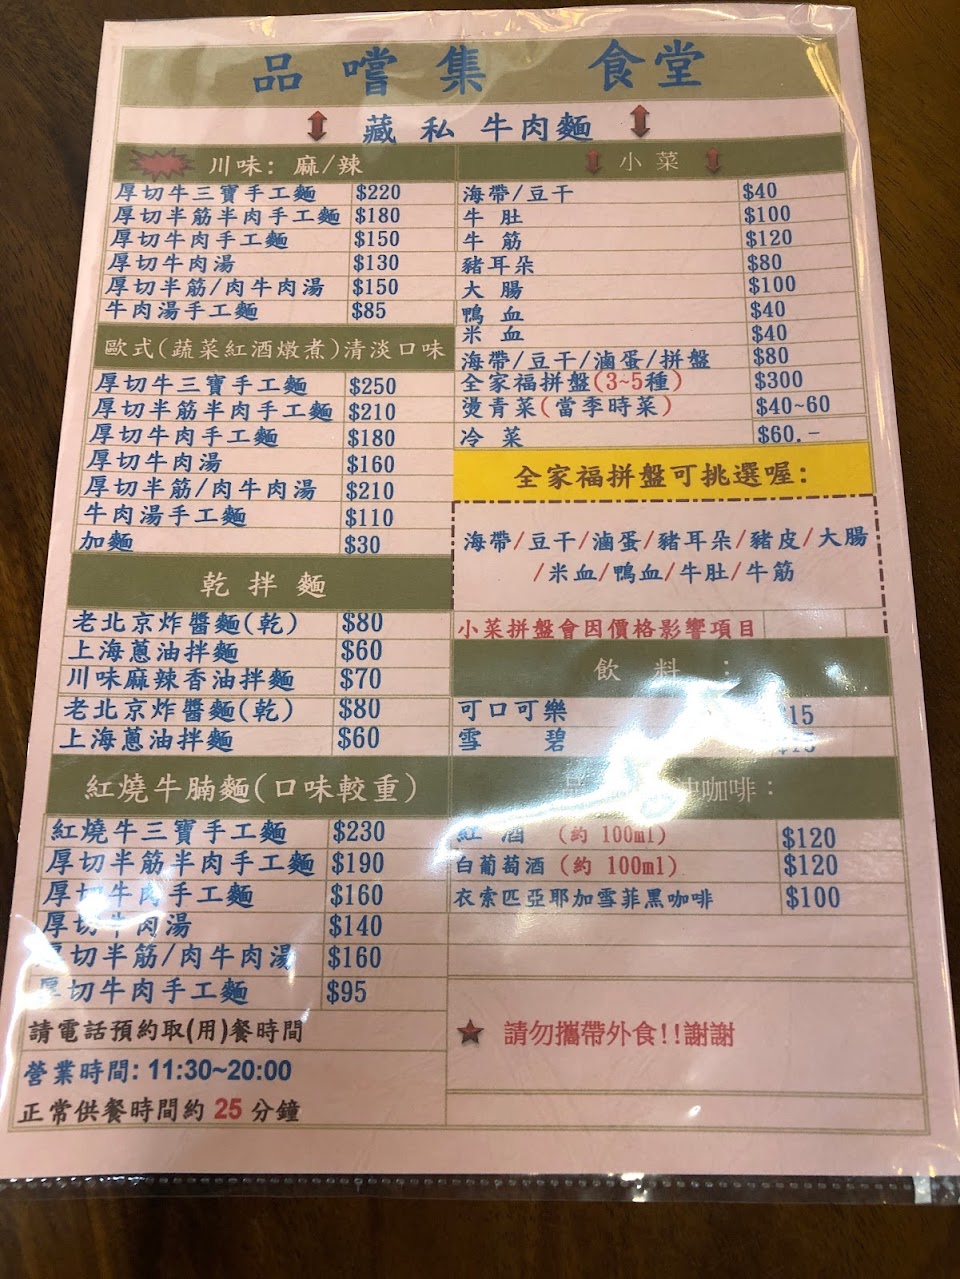 品嚐集 食堂
藏私牛肉麵
川味：麻/辣
厚切牛三寶手工麵 $220
厚切半筋半肉手工麵 $180
厚切牛肉手工麵 $150
厚切牛肉湯 $130
厚切半筋/肉牛肉湯 $150
牛肉湯手工麵 $85
歐式(蔬菜紅酒燉煮)清淡口味
厚切牛三寶手工麵 $250
厚切半筋半肉手工麵 $210
厚切牛肉手工麵 $180
厚切牛肉湯 $160
厚切半筋/肉牛肉湯 $210
牛肉湯手工麵 $110
加麵 $30
乾拌麵
老北京炸醬麵(乾) $80
上海蔥油拌麵 $60
川味麻辣香油拌麵 $70
老北京炸醬麵(乾) $80
上海蔥油拌麵 $60
紅燒牛腩麵(口味較重)
紅燒牛三寶手工麵 $230
厚切半筋半肉手工麵 $190
厚切牛肉手工麵 $160
厚切牛肉湯 $140
厚切半筋/肉牛肉湯 $160
厚切牛肉手工麵 $95
請電話預約取(用)餐時間
營業時間：11:30~20:00
正常供餐時間約 25 分鐘
小菜
海帶/豆干 $40
牛肚 $100
牛筋 $120
豬耳朵 $80
大腸 $100
鴨血 $40
米血 $40
海帶/豆干/滷蛋/拼盤 $80
全家福拼盤(3~5種) $300
燙青菜(當季時菜) $40~60
冷菜 $60.-
全家福拼盤可挑選喔：
海帶/豆干/滷蛋/豬耳朵/豬皮/大腸
/米血/鴨血/牛肚/牛筋
小菜拼盤會因價格影響項目
飲料：
可口可樂 $15
雪碧
咖啡：
紅酒 (約 100ml) $120
白葡萄酒 (約 100ml) $120
衣索匹亞耶加雪菲黑咖啡 $100
請勿攜帶外食!!謝謝